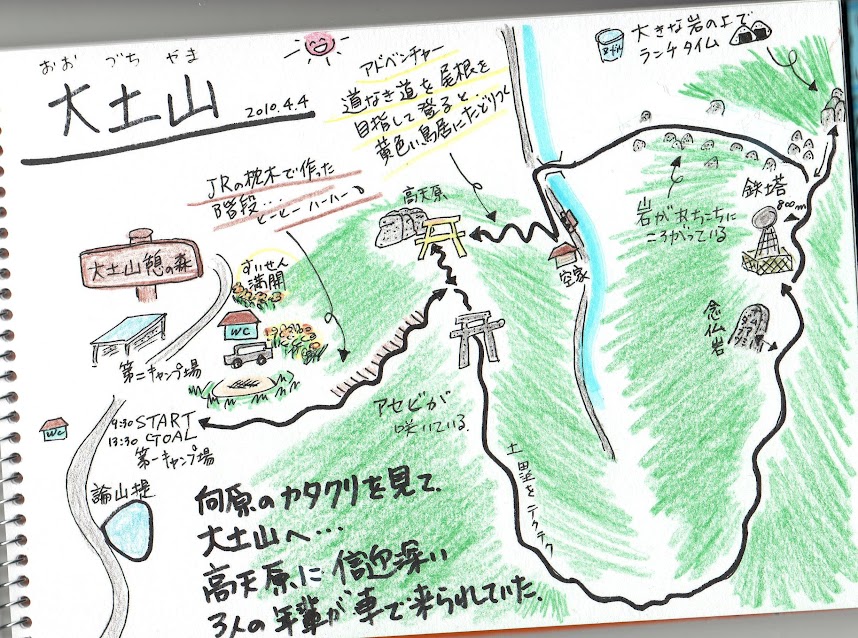 おお づち やま
大土山 2010.4.4
アドベンチャー
道なき道を尾根を
目指して登ると
黄色い鳥居にたどりつく
大きな岩の上で
ランチタイム
JRの枕木で作った
階段…
ヒーヒー ハーハー
高天原
岩があちこちに
ころがっている
鉄塔
800m
念仏岩
空家
大土山憩の森
すいせん
満開
WC
第二キャンプ場
9:30 START
13:30 GOAL
第一キャンプ場
WC
論山堤
アセビが
咲いている
土塁をテクテク
向原のカタクリを見て、
大土山へ…
高天原に信迎深い
3人の年輩が車で来られていた.